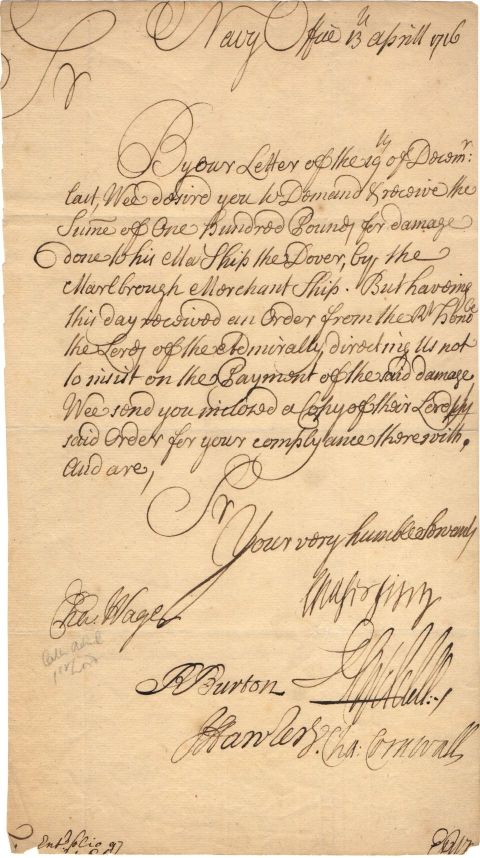 Navy Office 13th aprill 1716
Sr
By our Letter of the 19th of Decemr:
last, Wee desired you to Demand & receive the
Sum̄e of One Hundred Pounds for damage
done to his Ma Ship the Dover, by the
Marlbrough Merchant Ship. But haveing
this day received an Order from the Rt Honoble
the Lords of the Admiralty directing Us not
to insist on the Payment of the said damage
Wee send you inclosed a Copy of their Lordpps
said Order for your complyance therewith,
And are,
Sr
Your very humble Servants
Cha: Wager
R Burton
Cha: Cornwall
Entd folio 97